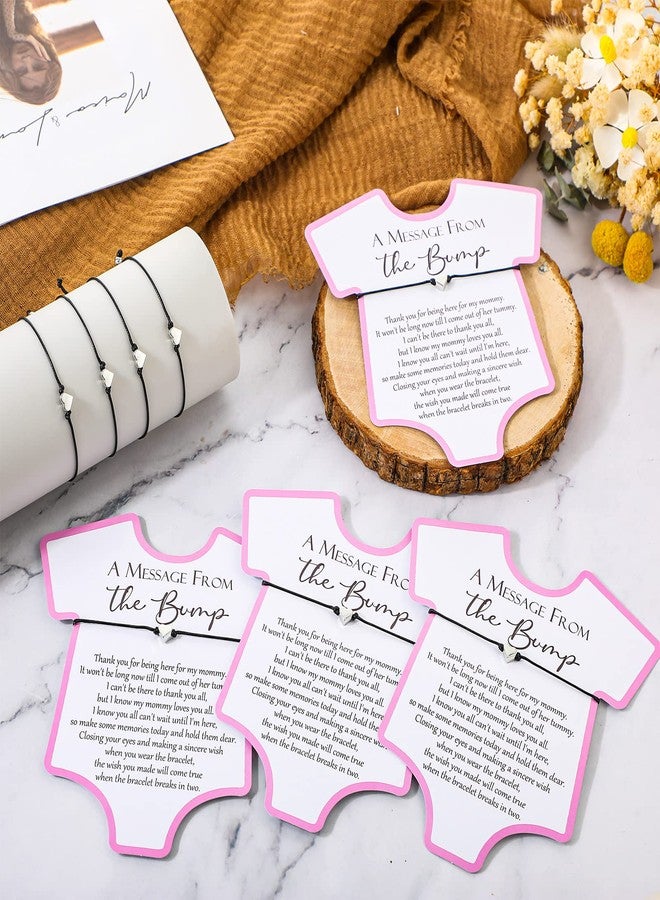 A MESSAGE FROM
the Bump
Thank you for being here for my mommy.
It won't be long now till I come out of her tummy.
I can't be there to thank you all,
but I know my mommy loves you all.
I know you all can't wait until I'm here,
so make some memories today and hold them dear.
Closing your eyes and making a sincere wish
when you wear the bracelet,
the wish you made will come true
when the bracelet breaks in two.
A MESSAGE FROM
the Bump
Thank you for being here for my mommy.
It won't be long now till I come out of her
I can't be there to thank you all,
but I know my mommy loves you all.
I know you all can't wait until I'm here,
so make some memories today and hold them dear.
Closing your eyes and making a sincere wish
when you wear the bracelet,
the wish you made will come true
when the bracelet breaks in two.
A MESSAGE
the Bump
Thank you for being here for my mommy.
It won't be long now till I come out of her
I can't be there to thank you all,
but I know my mommy loves you all.
I know you all can't wait until I'm here,
so make some memories today and hold
Closing your eyes and making a sincere
when you wear the bracelet,
the wish you made will come true
when the bracelet breaks in two.
A MESSAGE FROM
the Bump
Thank you for being here for my mommy.
It won't be long now till I come out of her tummy.
I can't be there to thank you all,
but I know my mommy loves you all.
I know you all can't wait until I'm here,
so make some memories today and hold them dear.
Closing your eyes and making a sincere wish
when you wear the bracelet,
the wish you made will come true
when the bracelet breaks in two.